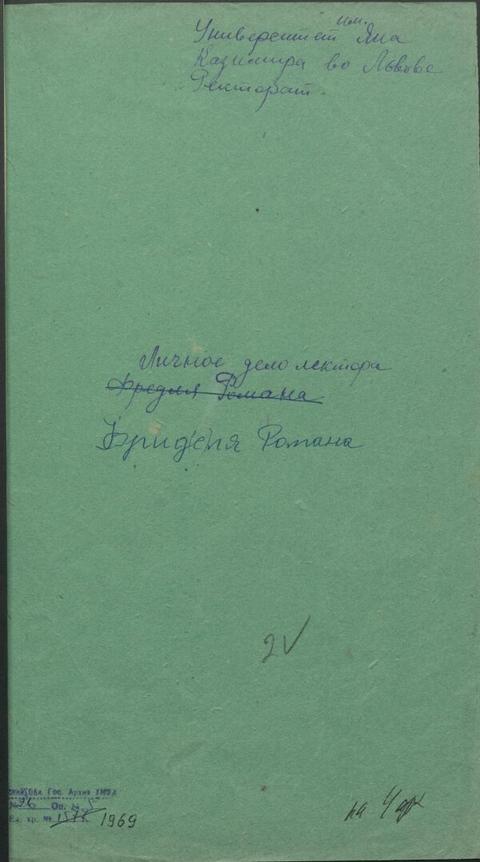 Университет им. Яна
Казимира во Львове
Ректорат.
Личное дело лектора
Фределя Романа
Фриделя Романа
2
Гос. Архив УМВД
Оп. № 5
Ед. хр. № 1969
на